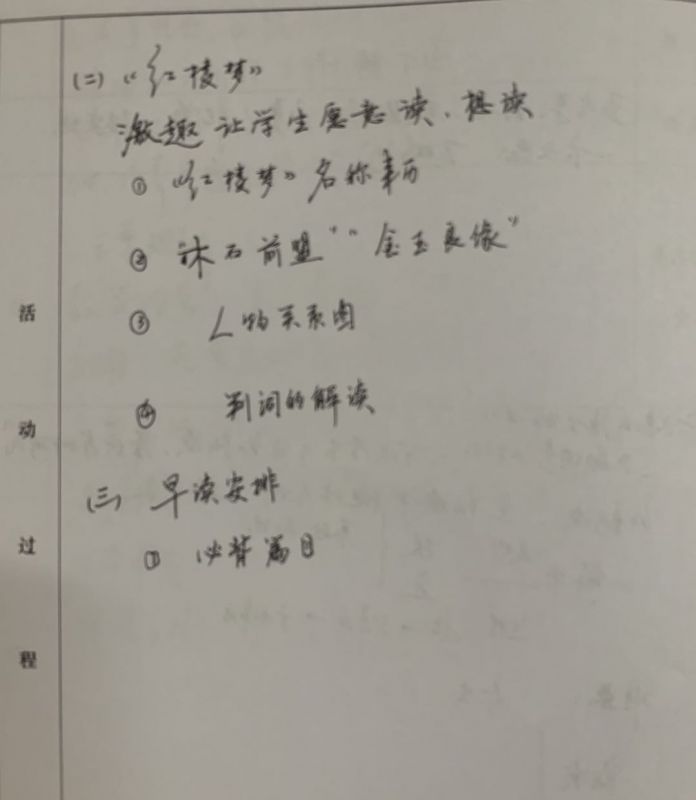 (二)《红楼梦》
激趣 让学生愿意读、想读
① 《红楼梦》名称来历
② 木石前盟""金玉良缘"
③ 人物关系图
④ 判词的解读
(三) 早读安排
① 必背篇目
活
动
过
程